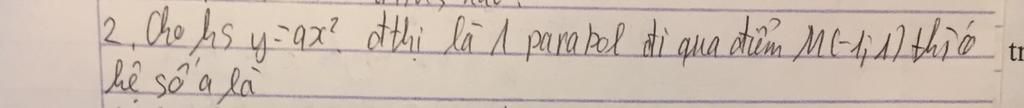 2. Cho hs y=ax². đthi là 1 parabol đi qua điểm M(-1;1) thì
hệ số a là